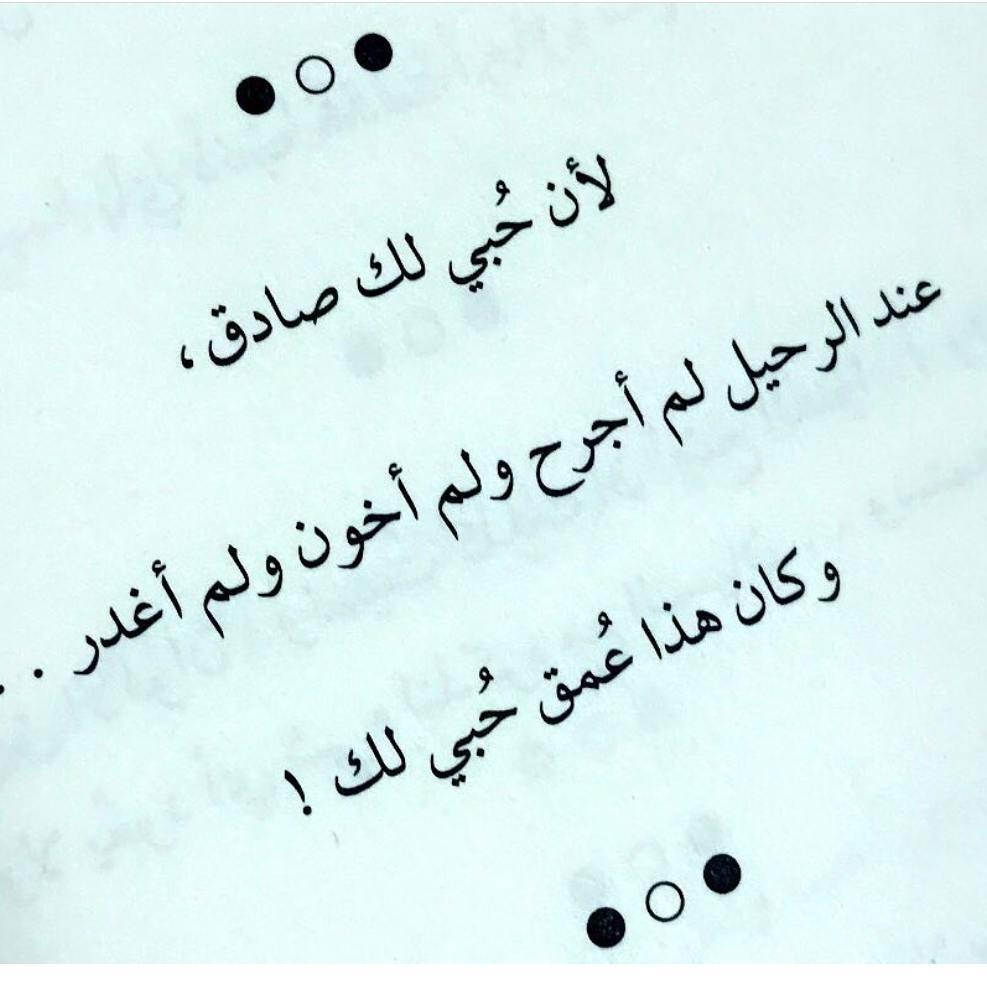 لأن حُبي لك صادق،
عند الرحيل لم أجرح ولم أخون ولم أغدر . .
وكان هذا عُمق حُبي لك !